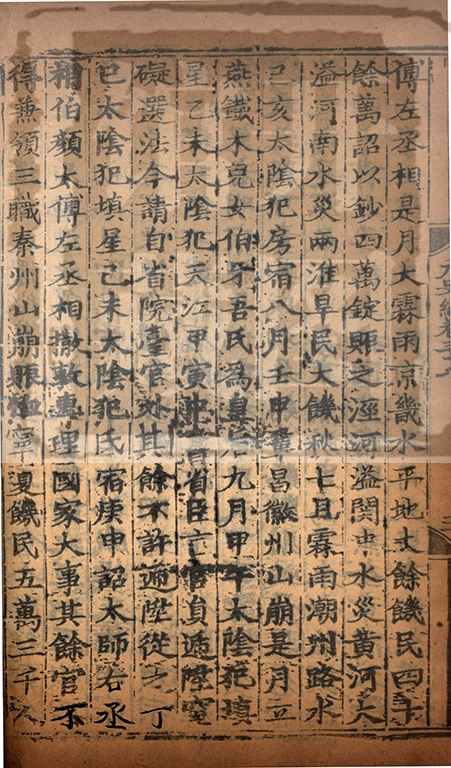 傅左丞相是月大霖雨京畿水平地丈餘饑民四十
餘萬詔以鈔四萬錠賑之涇河溢関中水災黃河大
溢河南水災兩淮旱民大饑秋七月霖雨潮州路水
己亥太陰犯房宿八月壬申鞏昌徽州山崩是月立
燕鐵木兒女伯牙吾氏爲皇后九月甲午太陰犯填
星乙未太陰犯天江甲寅中書省臣言官員遞陞窒
礙選法今請自省院臺官外其餘不許遞陞從之丁
巳太陰犯填星己未太陰犯氐宿庚申詔太師右丞
相伯顔太傅左丞相撒敦專理國家大事其餘官不
得兼領三職秦州山崩賑恤寧夏饑民五萬三千人